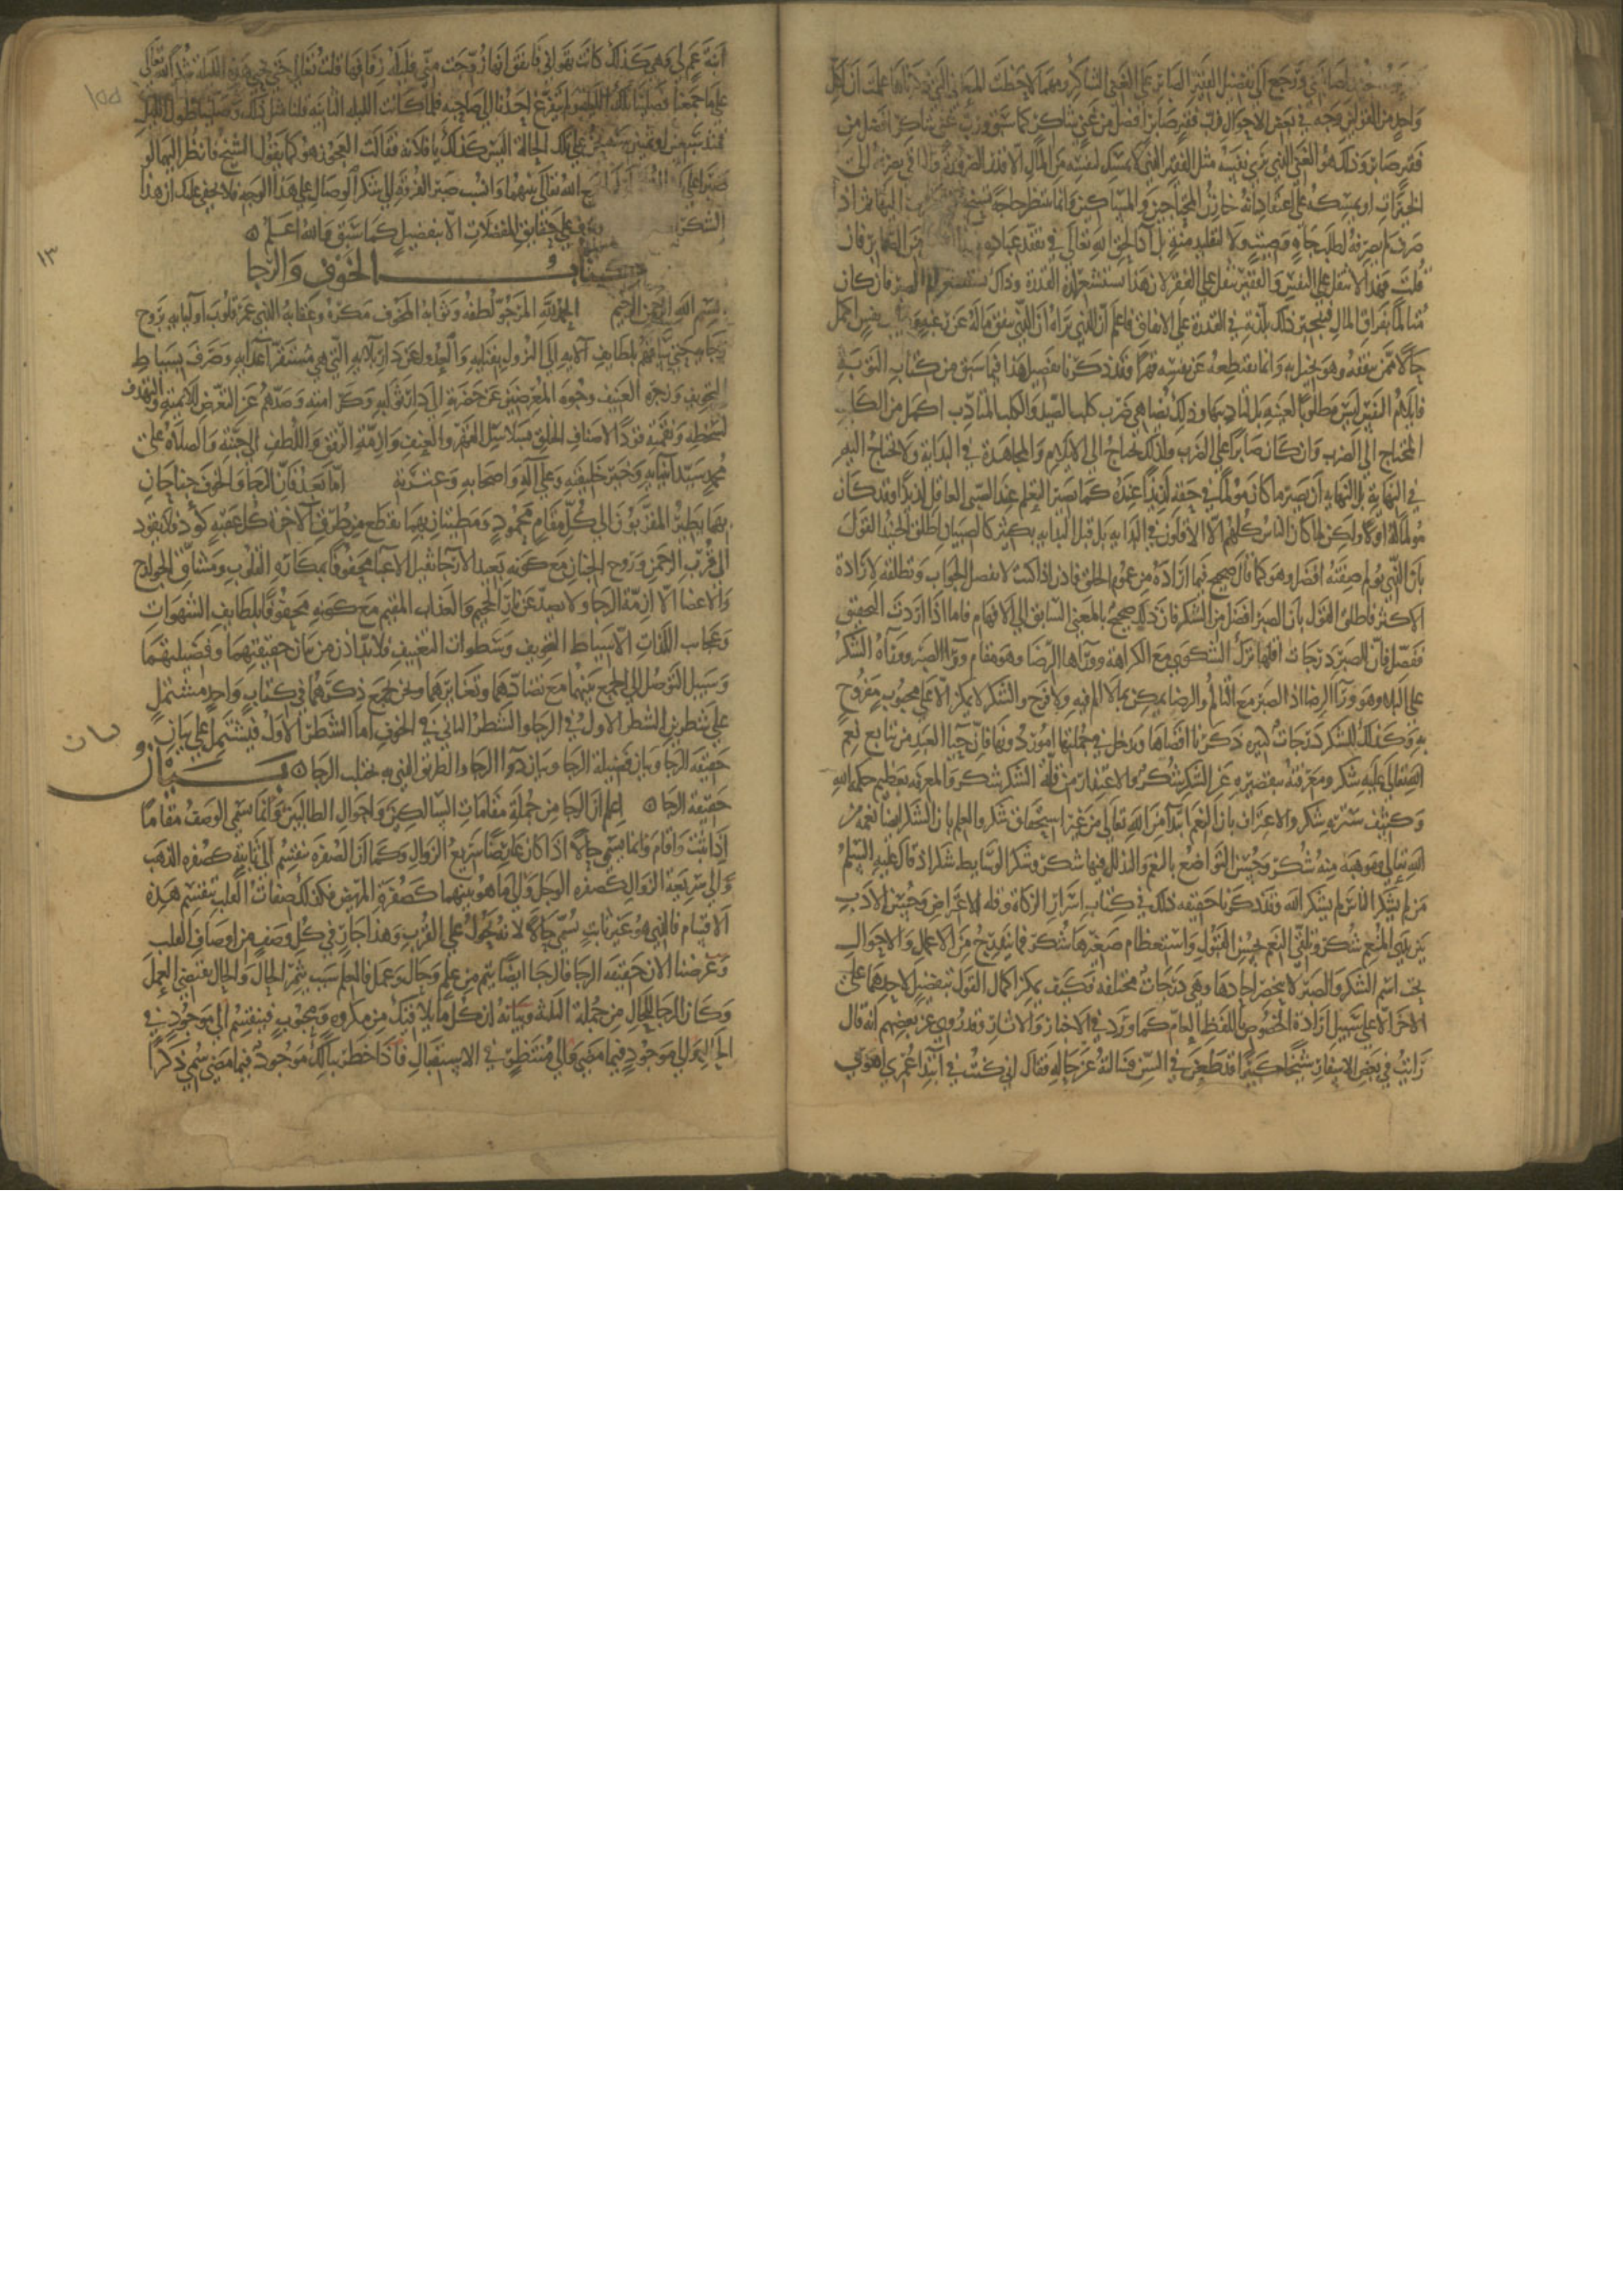 وترجع الى تفضيل الفقير الصابر على الغنى الشاكر ومهما لاحظت المعانى التى ذكرناها علمت ان لكل
واحد من القولين وجه في بعض الاحوال فرب فقير صابر افضل من غنى شاكر كما سبق ورب غنى شاكر افضل من
فقير صابر وذلك هو الغنى الذي يرى نفسه مثل الفقير الذي لا يمسك لنفسه من المال الا قدر الضروره والباقي يصرفه الى
الخيرات او يمسكه على اعتقاد انه خازن المحتاجين والمساكين وانما ينتظر حاجة تسنح اليها ثم اذا
صرف لم يصرفه لطلب جاه وصيت ولا لتقليد منة بل آدا لحق الله تعالى في تفقد عباده فهذا افضل من الفقير الصابر فان
قلت فهذا لا يثقل على النفس والفقير يثقل عليه الفقر لان هذا يستشعر لذة القدرة وذاك يستشعر الم الصبر فان كان
متالما بفراق المال فينجبر ذلك بلذته في القدرة على الانفاق فاعلم ان الذي نراه ان الذي ينفق ماله عن رغبة وطيب نفس اكمل
حالا ممن ينفقه وهو بخيل به وانما يقتطعه عن نفسه قهرا وقد ذكرنا تفصيل هذا فيما سبق من كتاب التوبة
فايلام النفس ليس مطلوبا لعينه بل لتاديبها وذلك يضاهي ضرب كلب الصيد والكلب المتادب اكمل من الكلب
المحتاج الى الضرب وان كان صابرا على الضرب ولذلك يحتاج الى الايلام والمجاهدة في البداية ولا يحتاج اليهما
في النهاية بل النهاية ان يصير ما كان مولما في حقه لذيذا عنده كما يصير التعلم عند الصبى العاقل لذيذا وقد كان
مولما له اولا ولكن لما كان الناس كلهم الا الاقلون في البدايه بل قبل البدايه بكثير كالصبيان اطلق الجنيد القول
بان الذي يولم صفته افضل وهو كما قال صحيح فيما اراده من عموم الخلق فاذن اذا كنت لا تفصل الجواب وتطلقه لارادة
الاكثر فاطلق القول بان الصبر افضل من الشكر فان ذلك صحيح بالمعنى السابق الى الافهام فاما اذا اردت التحقيق
ففصل فان الصبر درجات اقلها ترك الشكوى مع الكراهة ووراها الرضا وهو مقام ورا الصبر ووراه الشكر
على البلا وهو ورا الرضا اذ الصبر مع التالم والرضا يمكن بما لا الم فيه ولا فرح والشكر لا يمكن الا على محبوب مفروح
به وكذلك للشكر درجات كثيره ذكرنا اقصاها ويدخل في جملتها امور دونها فان حيا العبد من تتابع نعم
الله تعالى عليه شكر ومعرفته بتقصيره عن الشكر شكر والاعتذار من قلة الشكر شكر والمعرفه بعظيم حلم الله
وكثيف ستره شكر والاعتراف بان النعم ابتدآ من الله تعالى من غير استحقاق شكر والعلم بان الشكر ايضا نعمه من
الله تعالى وموهبة منه شكر وحسن التواضع بالنعم والتذلل فيها شكر وشكر الوسايط شكر اذ قال عليه السلم
من لم يشكر الناس لم يشكر الله وقد ذكرنا حقيقه ذلك في كتاب اسرار الزكاة وقلة الاعتراض وحسن الادب
بين يدى المنعم شكر وتلقى النعم بحسن القبول واستعظام صغيرها شكر فما يندرج من الاعمال والاحوال
تحت اسم الشكر والصبر لا ينحصر احادها وهي درجات مختلفه فكيف يمكن اكمال القول بتفضيل لاحدهما على
الاخر الا على سبيل ارادة الخصوص باللفظ العام كما ورد في الاخبار والاثار وقد روى عن بعضهم انه قال
رايت في بعض الاسفار شيخا كبيرا قد طعن في السن فسالته عن حاله فقال اني كنت في ابتدا عمرى اهوى
ابنة عم لي وهي كذلك كانت تهواني فاتفق انها زوجت منى فليلة زفافها قلت تعالى حتى نحيى هذه الليله شكرا لله تعالى
على ما جمعنا فصلينا تلك الليلة ولم يتفرغ احدنا الى صاحبه فلما كانت الليله الثانيه قلنا مثل ذلك وصلينا طول الليل
فمنذ سبعين او ثمانين سنة نحن على تلك الحالة اليس كذلك يا فلانه فقالت العجوز هو كما يقول الشيخ فانظر اليهما لو
صبرا على الله تعالى بينهما وانسب صبر الفرقة الى شكر الوصال على هذا الوجه فلا يخفى عليك ان هذا
الشكر على حقايق المفضلات الا بتفضيل كما سبق والله اعلم
كتاب الخوف والرجا
بسم الله الرحمن الرحيم الحمد لله المرجو لطفه وثوابه المخوف مكره وعقابه الذي عمر قلوب اوليايه بروح
رجايه حتى ساقهم بلطايف آلايه الى النزول بفنايه والعدول عن دار بلايه التي هي مستقر اعدايه وصرف بسياط
التخويف وزجره العنيف وجوه المعرضين عن حضرته الى دار ثوابه وكرامته وصدهم عن التعرض للايمته والتهدف
لسخطه ونقمته قودا لاصناف الخلق بسلاسل القهر والعنف وازمة الرفق واللطف الى جنته والصلاة على
محمد سيد انبيايه وخير خليقته وعلى آله واصحابه وعترته اما بعد فان الرجا والخوف جناحان
بهما يطير المقربون الى كل مقام محمود ومطيتان بهما يقطع من طرق الاخرة كل عقبة كؤد فلا يقود
الى قرب الرحمن وروح الجنان مع كونه بعيد الارجا ثقيل الاعبا محفوفا بمكاره القلوب ومشاق الجوارح
والاعضا الا ازمة الرجا ولا يصد عن نار الجحيم والعذاب المقيم مع كونه محفوفا بلطايف الشهوات
وعجايب اللذات الا سياط التخويف وسطوات التعنيف فلا بد اذن من بيان حقيقتهما وفضيلتهما
وسبيل التوصل الى الجمع بينهما مع تضادهما وتعاندهما ونحن نجمع ذكرهما في كتاب واحد مشتمل
على شطرين الشطر الاول في الرجا والشطر الثاني في الخوف اما الشطر الاول فيشتمل على بيان
حقيقه الرجا وبيان فضيلة الرجا وبيان دوا الرجا والطريق الذي به يجتلب الرجا بيان
حقيقة الرجا اعلم ان الرجا من جملة مقامات السالكين واحوال الطالبين وانما سمى الوصف مقاما
اذا ثبت واقام وانما يسمى حالا اذا كان عارضا سريع الزوال وكما ان الصفره تنقسم الى ثابتة كصفره الذهب
والى سريعة الزوال كصفره الوجل والى ما هو بينهما كصفرة المريض فكذلك صفات القلب تنقسم هذه
الاقسام فالذي هو غير ثابت يسمى حالا لانه يحول على القرب وهذا جار في كل وصف من اوصاف القلب
وغرضنا الان حقيقه الرجا فالرجا ايضا يتم من علم وحال وعمل فالعلم سبب يثمر الحال والحال يقتضى العمل
وكان الرجا للحال من جملة الثلثة وبيانه ان كل ما يلاقيك من مكروه ومحبوب فينقسم الى موجود في
الحال والى موجود فيما مضى والى منتظر في الاستقبال فاذا خطر ببالك موجود فيما مضى سمى ذكرا
بيان
١٣